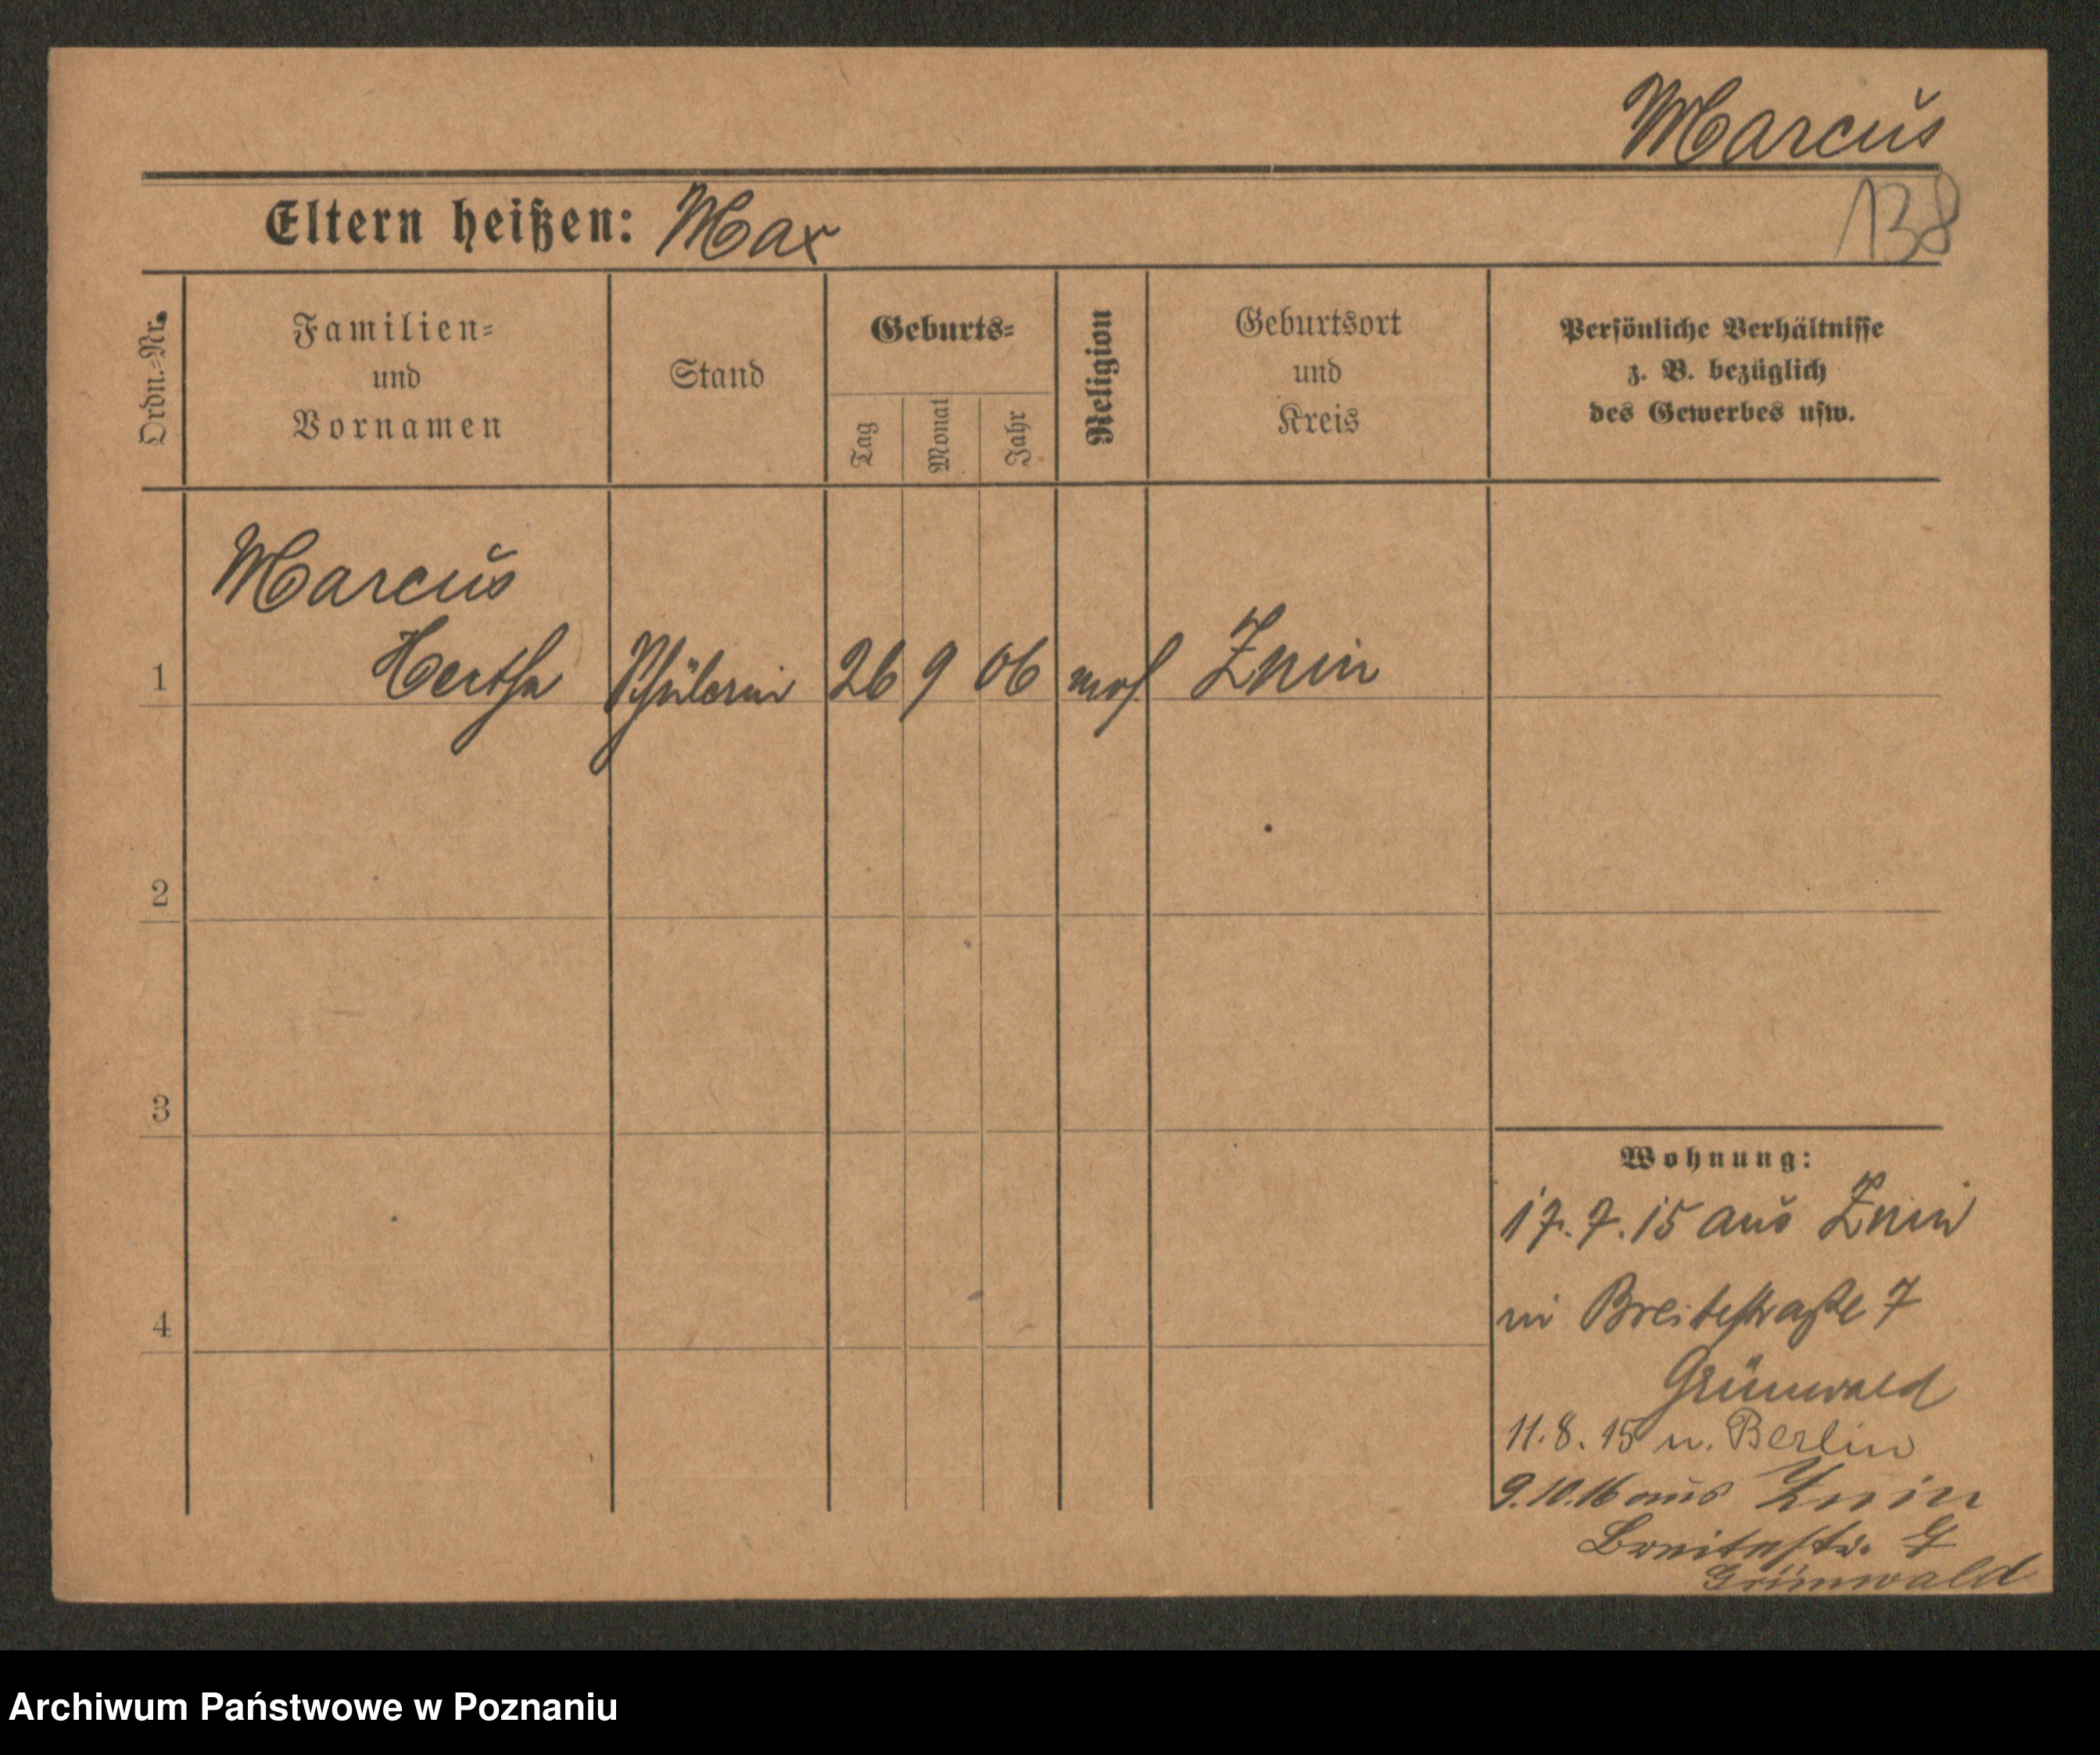 Marcus
138
Eltern heißen: Max
Ordn.-Nr.
Familien-
und
Vornamen
Stand
Geburts-
Tag
Monat
Jahr
Religion
Geburtsort
und
Kreis
Persönliche Verhältnisse
z. B. bezüglich
des Gewerbes usw.
Marcus
1 Hertha Schülerin 26 9 06 mos. Znin
2
3
4
Wohnung:
17.7.15 aus Znin
in Breitestraße 7
Grünwald
11.8.15 n. Berlin
9.10.16 aus Znin
Breitestr.
Grünwald
Archiwum Państwowe w Poznaniu